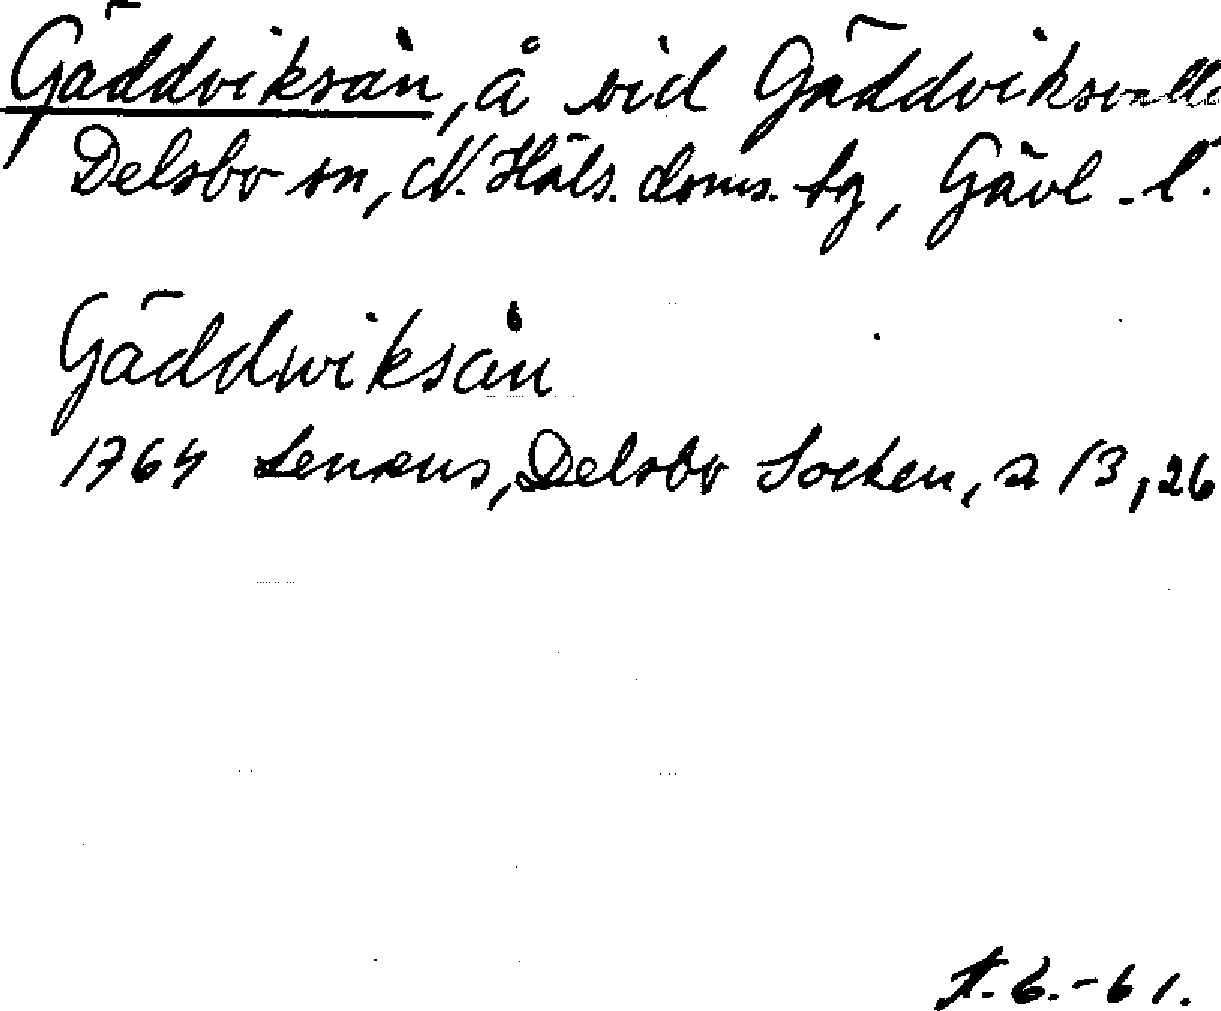 Gäddviksån, å vid Gäddviksvalle
Delsbo sn, N. Häls. doms. tg, Gävl. l.
Gäddwiksån
1764 Lenæus, Delsbo Socken, s 13, 26